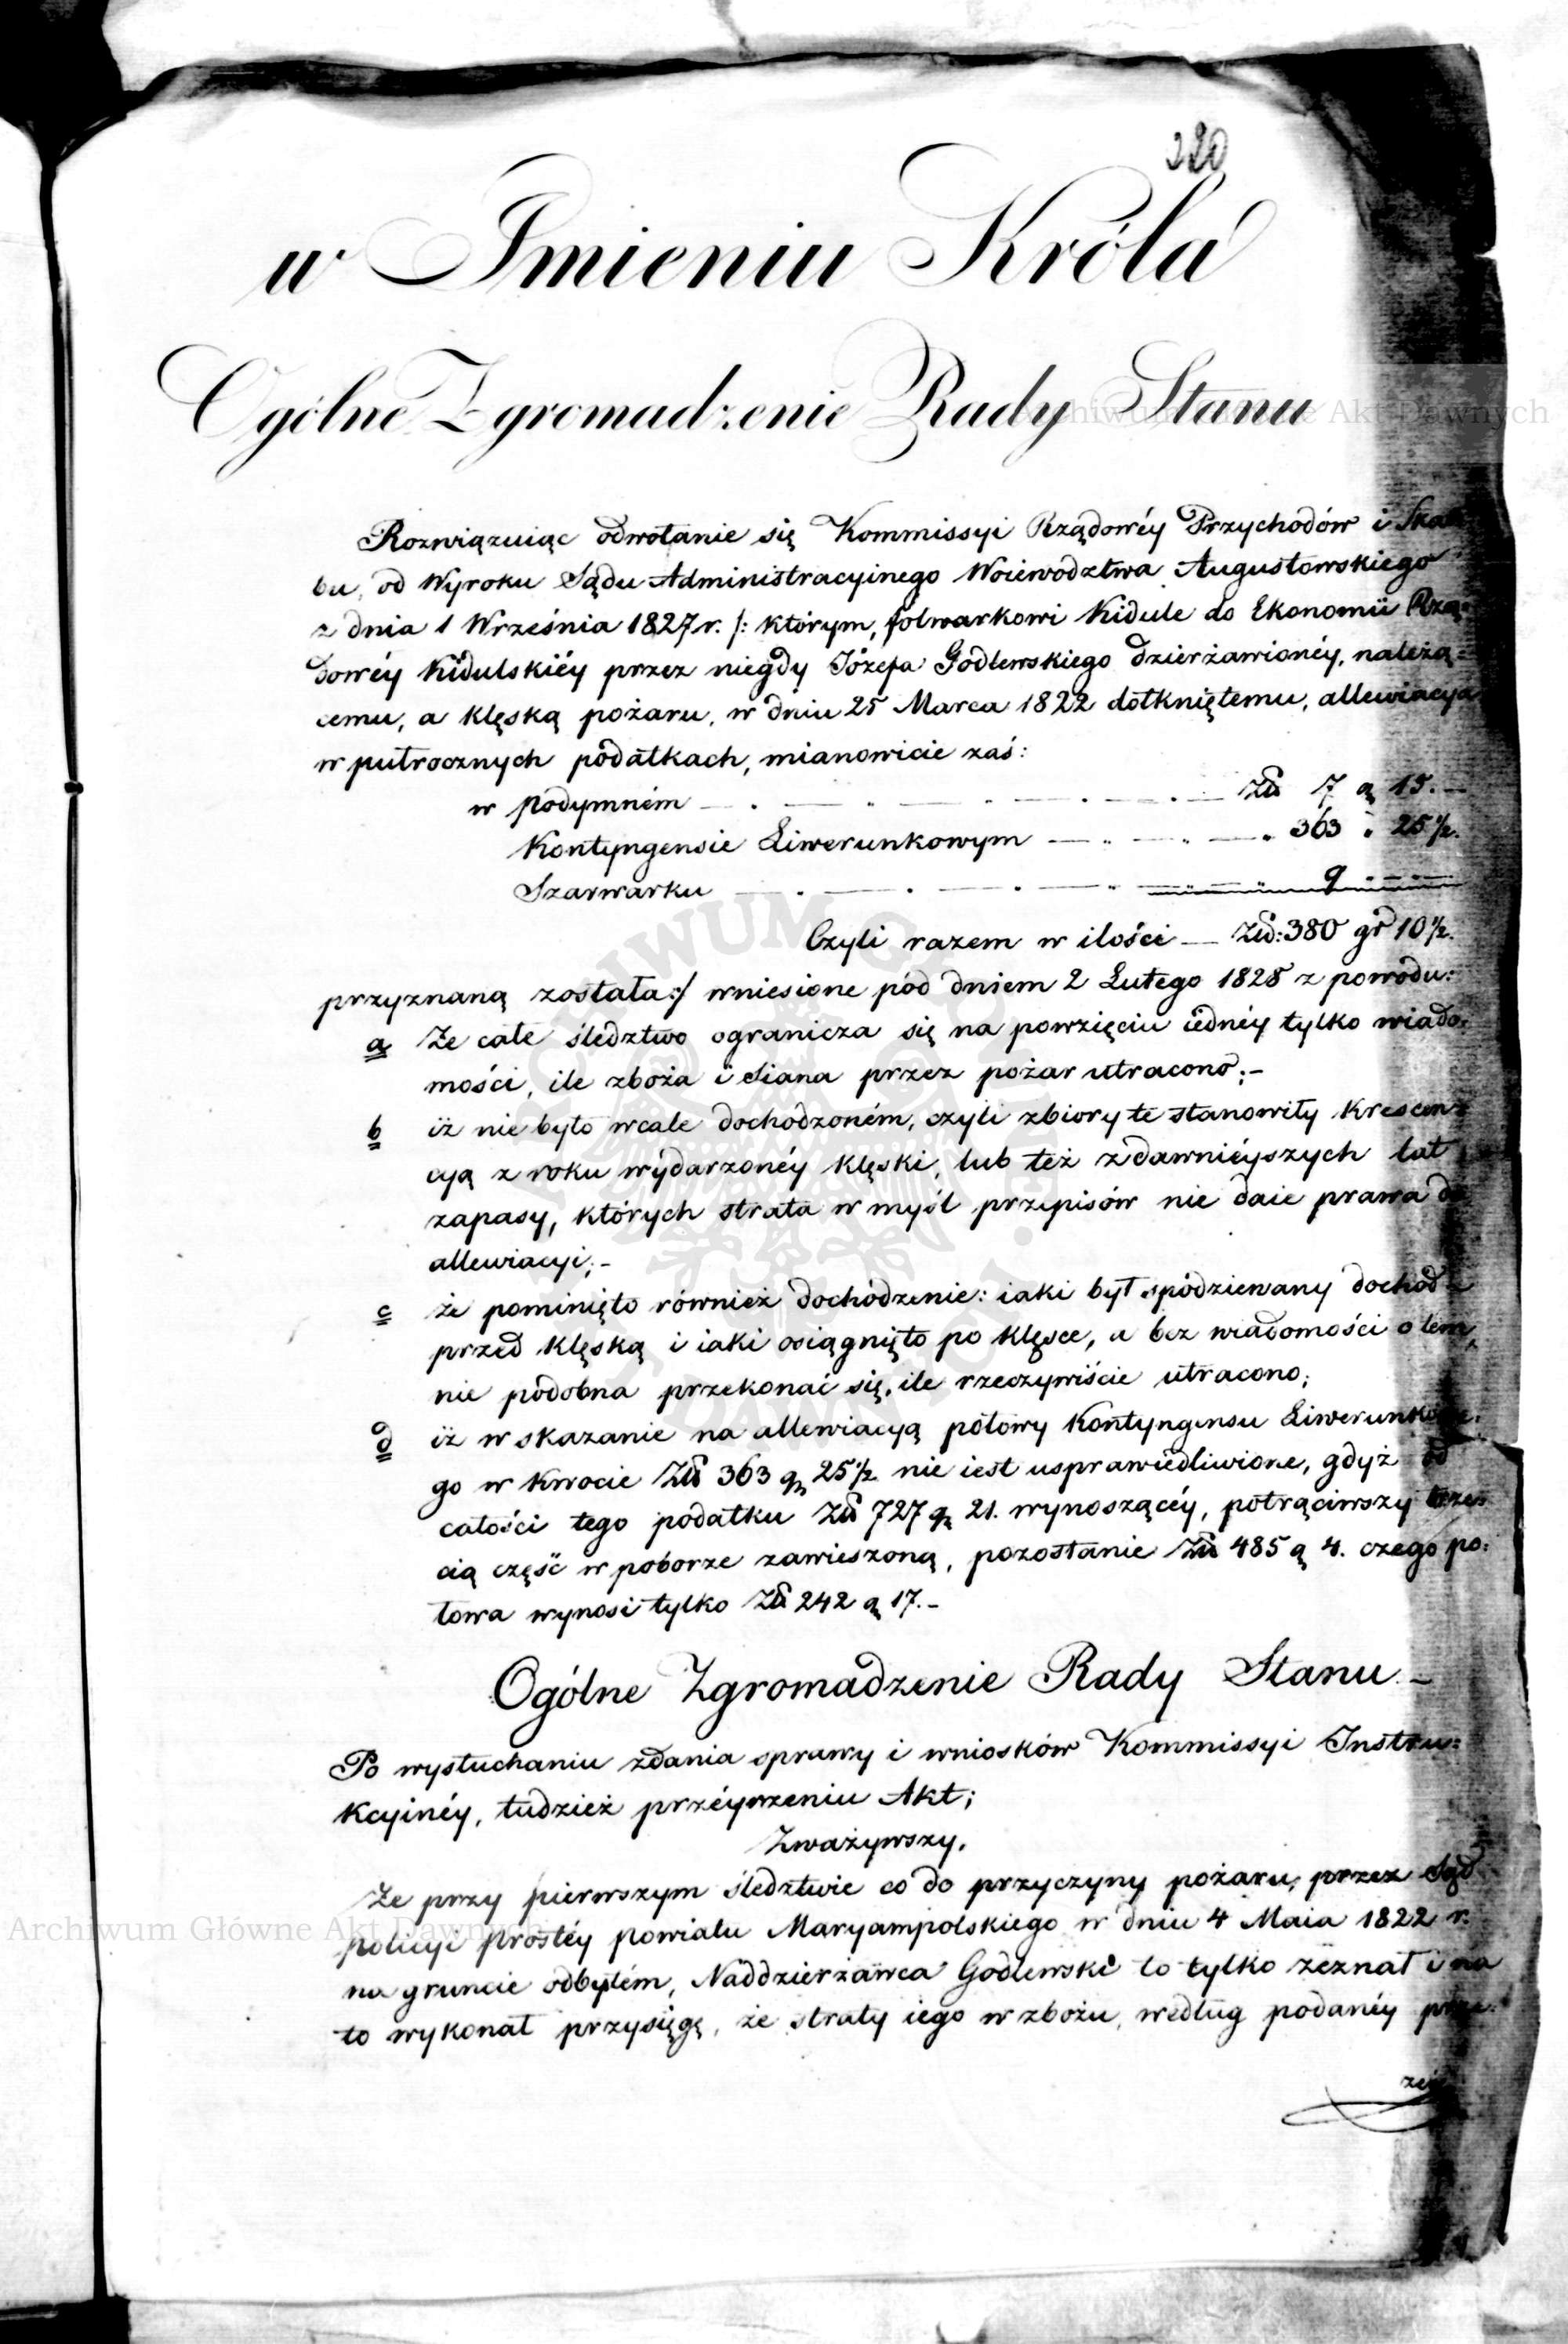 220
w Imieniu Króla
Ogólne Zgromadzenie Rady Stanu
Rozwiązuiąc odwołanie się Kommissyi Rządowéy Przychodów i Skar-
bu, od Wyroku Sądu Administracyinego Woiewództwa Augustowskiego
z dnia 1 Września 1827 r. /: którym, folwarkowi Kidule do Ekonomii Rzą=
dowéy Kidulskiéy przez niegdy Józefa Godlewskiego dzierżawionéy, należą=
cemu, a klęską pożaru, w dniu 25 Marca 1822 dotkniętemu, allewiacya
w pułrocznych podatkach, mianowicie zaś:
w podymném — . — „ — . — . — Zł 7 g 15. —
Kontyngensie Liwerunkowym — „ — „ — „ 363 „ 25½.
Szarwarku — . — . — . — „ — 9 „ —
Czyli razem w ilości — Złł: 380 gr 10½.
przyznaną została:/ wniesione pód dniem 2 Lutego 1828 z powodu:
a Że całe śledztwo ogranicza się na powzięciu iednéy tylko wiado:
mości, ile zboża i Siana przez pożar utracono; –
b iż nie było wcale dochodzoném, czyli zbiory te stanowiły krescen=
cyą z roku wydarzonéy klęski, lub też z dawnieyszych lat
zapasy, których strata w myśl przepisów nie daie prawa do
allewiacyi; –
c że pominięto również dochodzenie: iaki był spodziewany dochód –
przed klęską i iaki osiągnięto po klęsce, a bez wiadomości o tem,
nie podobna przekonać się, ile rzeczywiście utracono;
d iż wskazanie na allewiacyą połowy Kontyngensu Liwerunkowe:
go w kwocie Zł 363 g 25½ nie iest usprawiedliwione, gdyż od
całości tego podatku Zł 727 g 21. wynoszącéy, potrąciwszy trze:
cią część w poborze zawieszoną, pozostanie Zł 485 g 4. czego po:
łowa wynosi tylko Zł 242 g 17. –
Ogólne Zgromadzenie Rady Stanu. –
Po wysłuchaniu zdania sprawy i wniosków Kommissyi Instru=
kcyinéy, tudzież przéyrzeniu Akt;
Zważywszy,
Że przy pierwszym śledztwie co do przyczyny pożaru, przez Sąd
policyi prostéy powiatu Maryampolskiego w dniu 4 Maia 1822 r.
na gruncie odbytém, Naddzierżawca Godlewski to tylko zeznał i na
to wykonał przysięgę, że straty iego w zbożu, według podanéy prze:
zeń
Archiwum Główne Akt Dawnych
Archiwum Główne Akt Dawnych